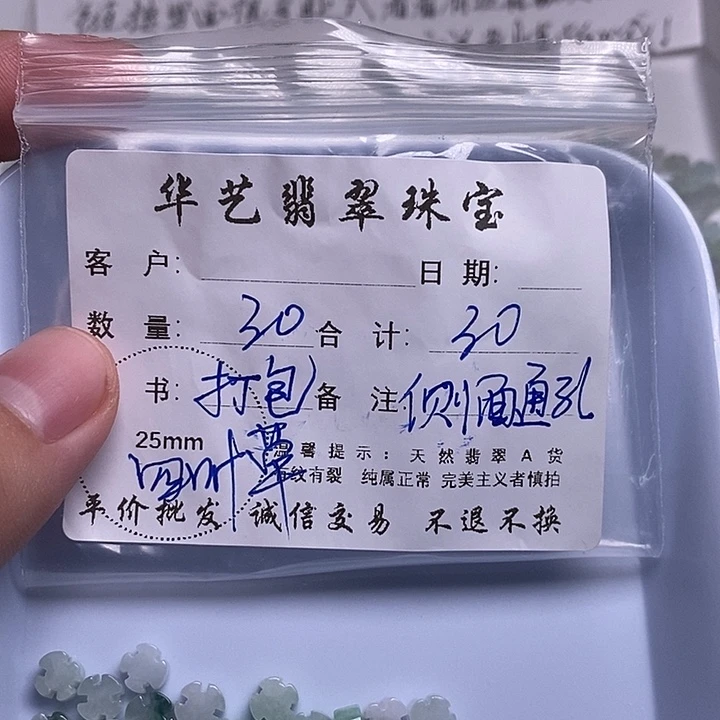 华艺翡翠珠宝
客户: 日期:
数量: 30 合计: 30
书: 打包 备注: 侧面通孔
25mm 温馨提示: 天然翡翠A货
四叶草 纹有裂 纯属正常 完美主义者慎拍
平价批发 诚信交易 不退不换